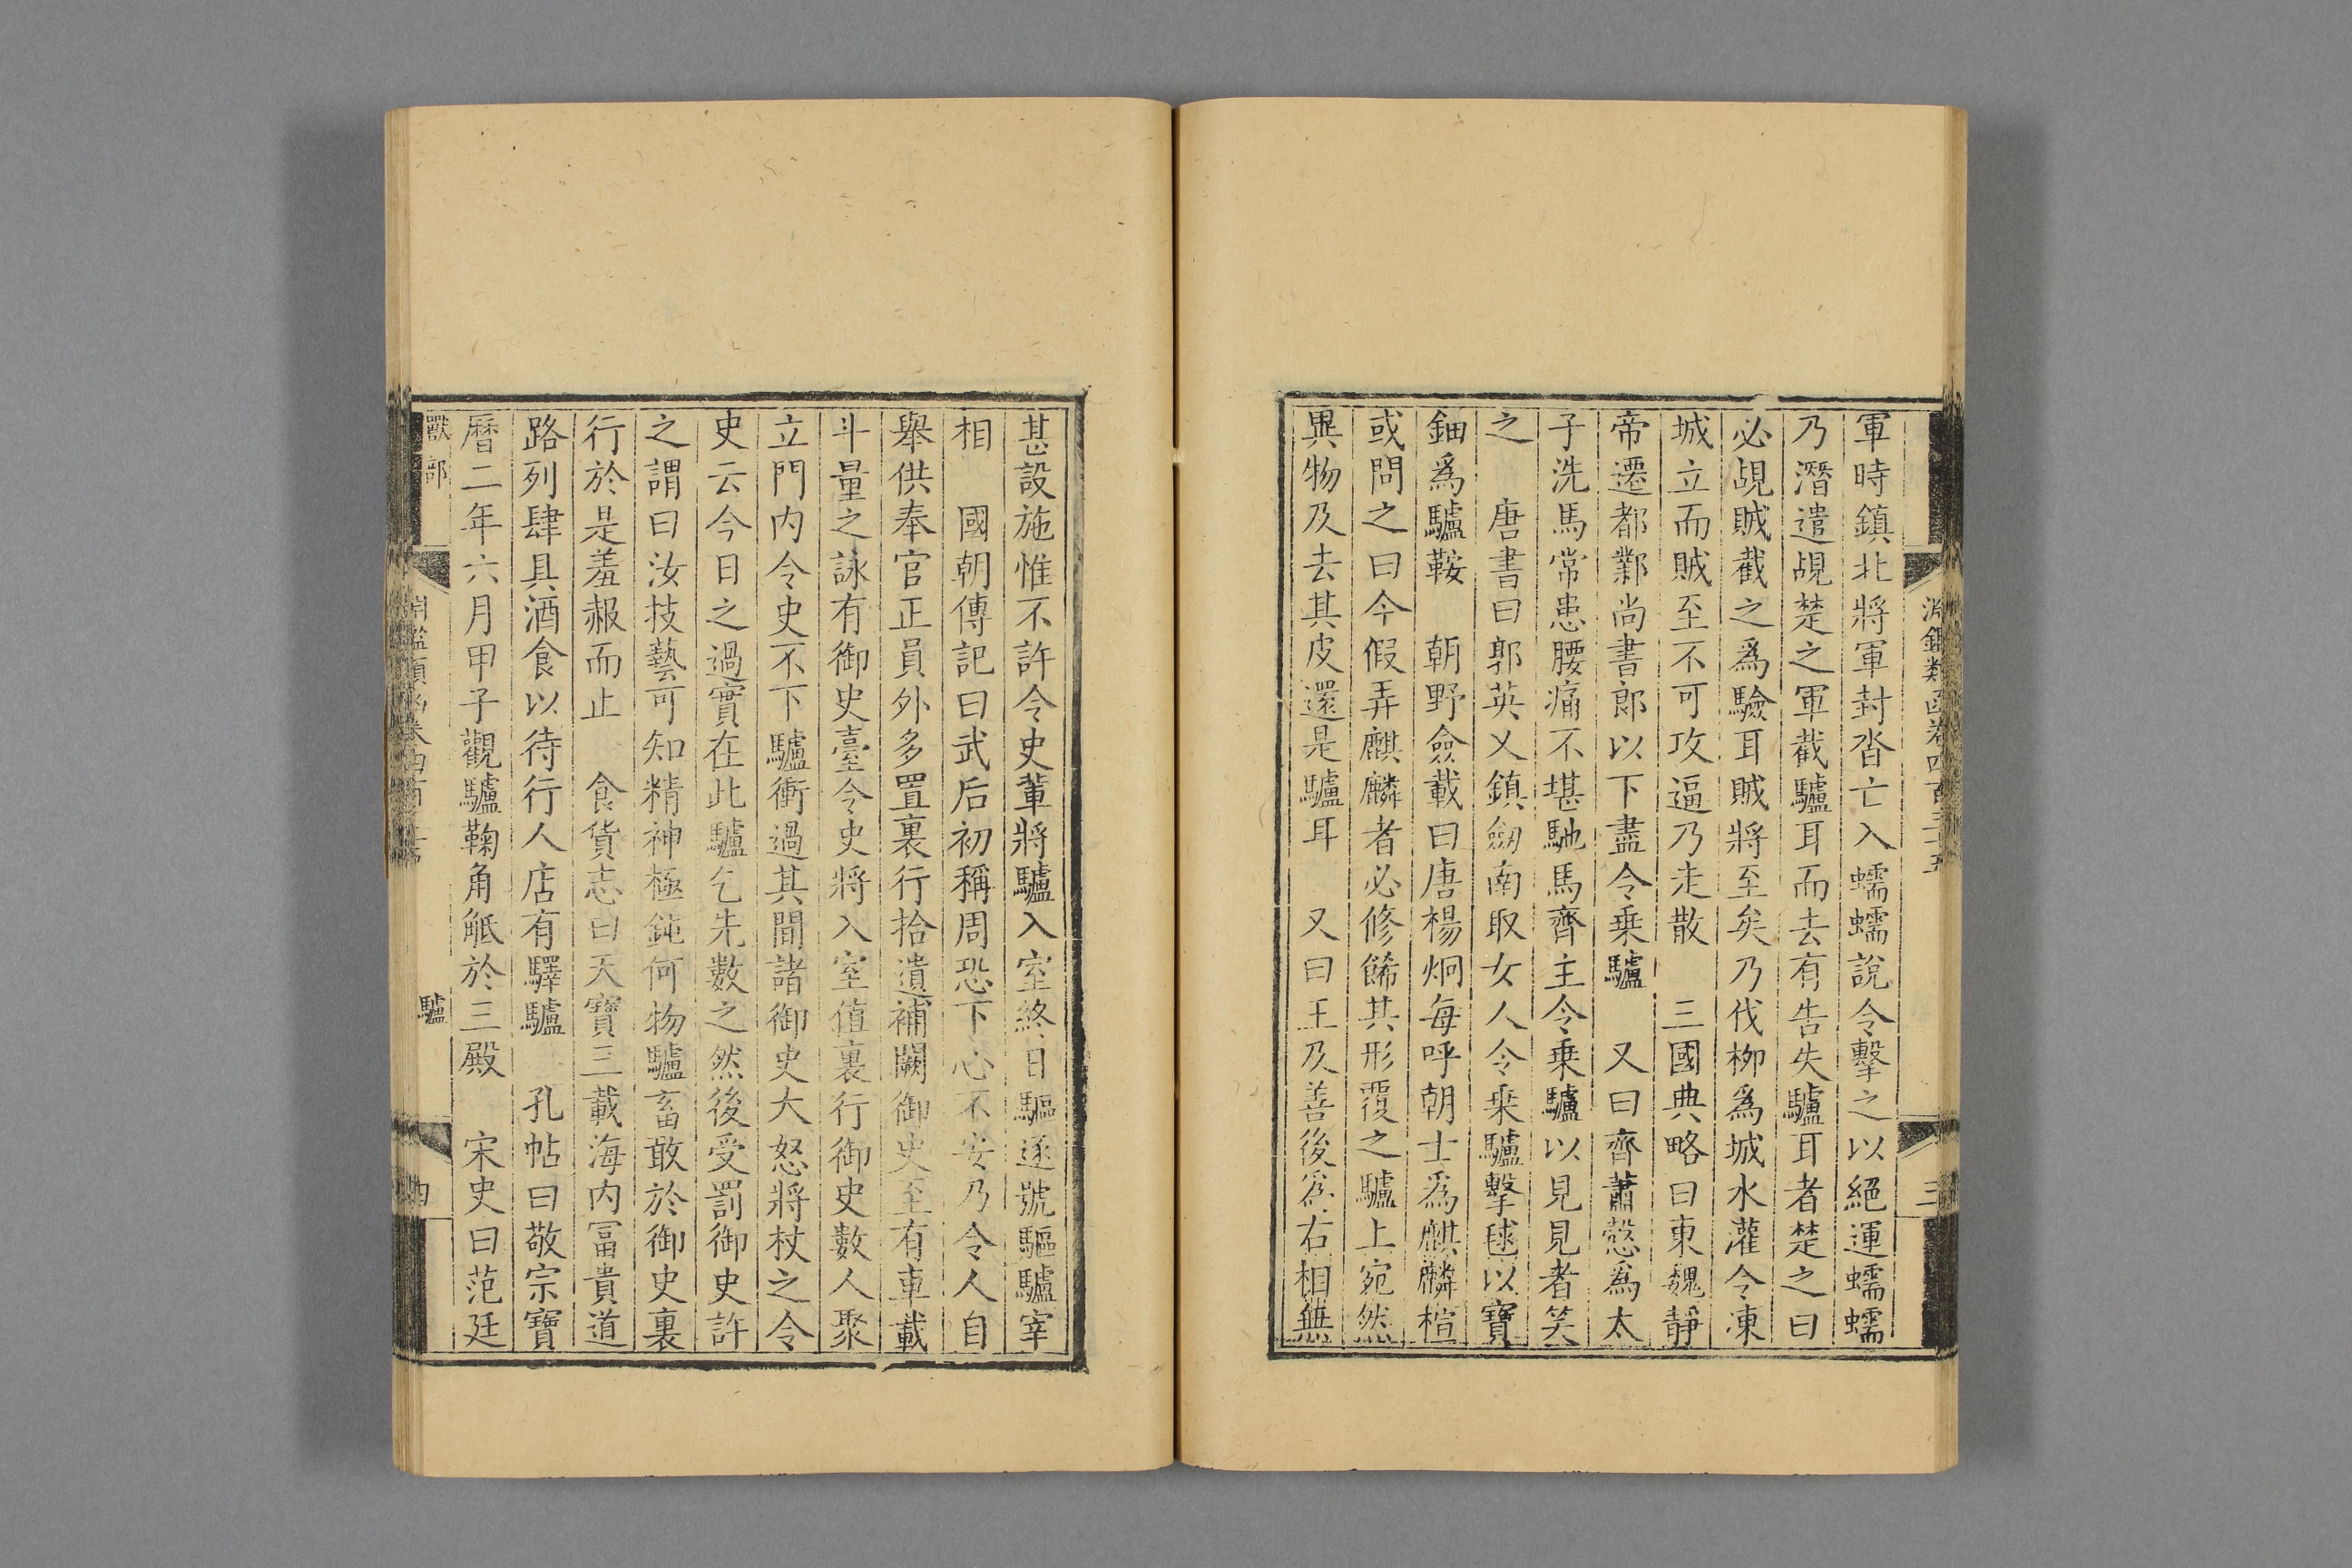 軍時鎮北將軍封沓亡入蠕蠕說令擊之以絕運蠕蠕
乃潛遣覘楚之軍截驢耳而去有告失驢耳者楚之曰
必覘賊截之爲驗耳賊將至矣乃伐柳爲城水灌令凍
城立而賊至不可攻逼乃走散　三國典略曰東魏靜
帝遷都鄴尚書郎以下盡令乗驢　又曰齊蕭慤爲太
子洗馬常患腰痛不堪馳馬齊主令乗驢以見見者笑
之　唐書曰郭英乂鎮劒南取女人令乗驢擊毬以寶
鈿爲驢鞍　朝野僉載曰唐楊炯每呼朝士爲麒麟楦
或問之曰今假弄麒麟者必修飾其形覆之驢上宛然
異物及去其皮還是驢耳　又曰王及善後爲右相無
淵鑑類函卷四百三十五
三
甚設施惟不許令史輩將驢入室終日驅逐號驅驢宰
相　國朝傳記曰武后初稱周恐下心不安乃令人自
舉供奉官正員外多置裏行拾遺補闕御史至有車載
斗量之詠有御史臺令史將入室值裏行御史數人聚
立門内令史不下驢衝過其間諸御史大怒將杖之令
史云今日之過實在此驢乞先數之然後受罰御史許
之謂曰汝技藝可知精神極鈍何物驢畜敢於御史裏
行於是羞赧而止　食貨志曰天寶三載海内冨貴道
路列肆具酒食以待行人店有驛驢　孔帖曰敬宗寶
曆二年六月甲子觀驢鞠角觝於三殿　宋史曰范廷
獸部
驢
四